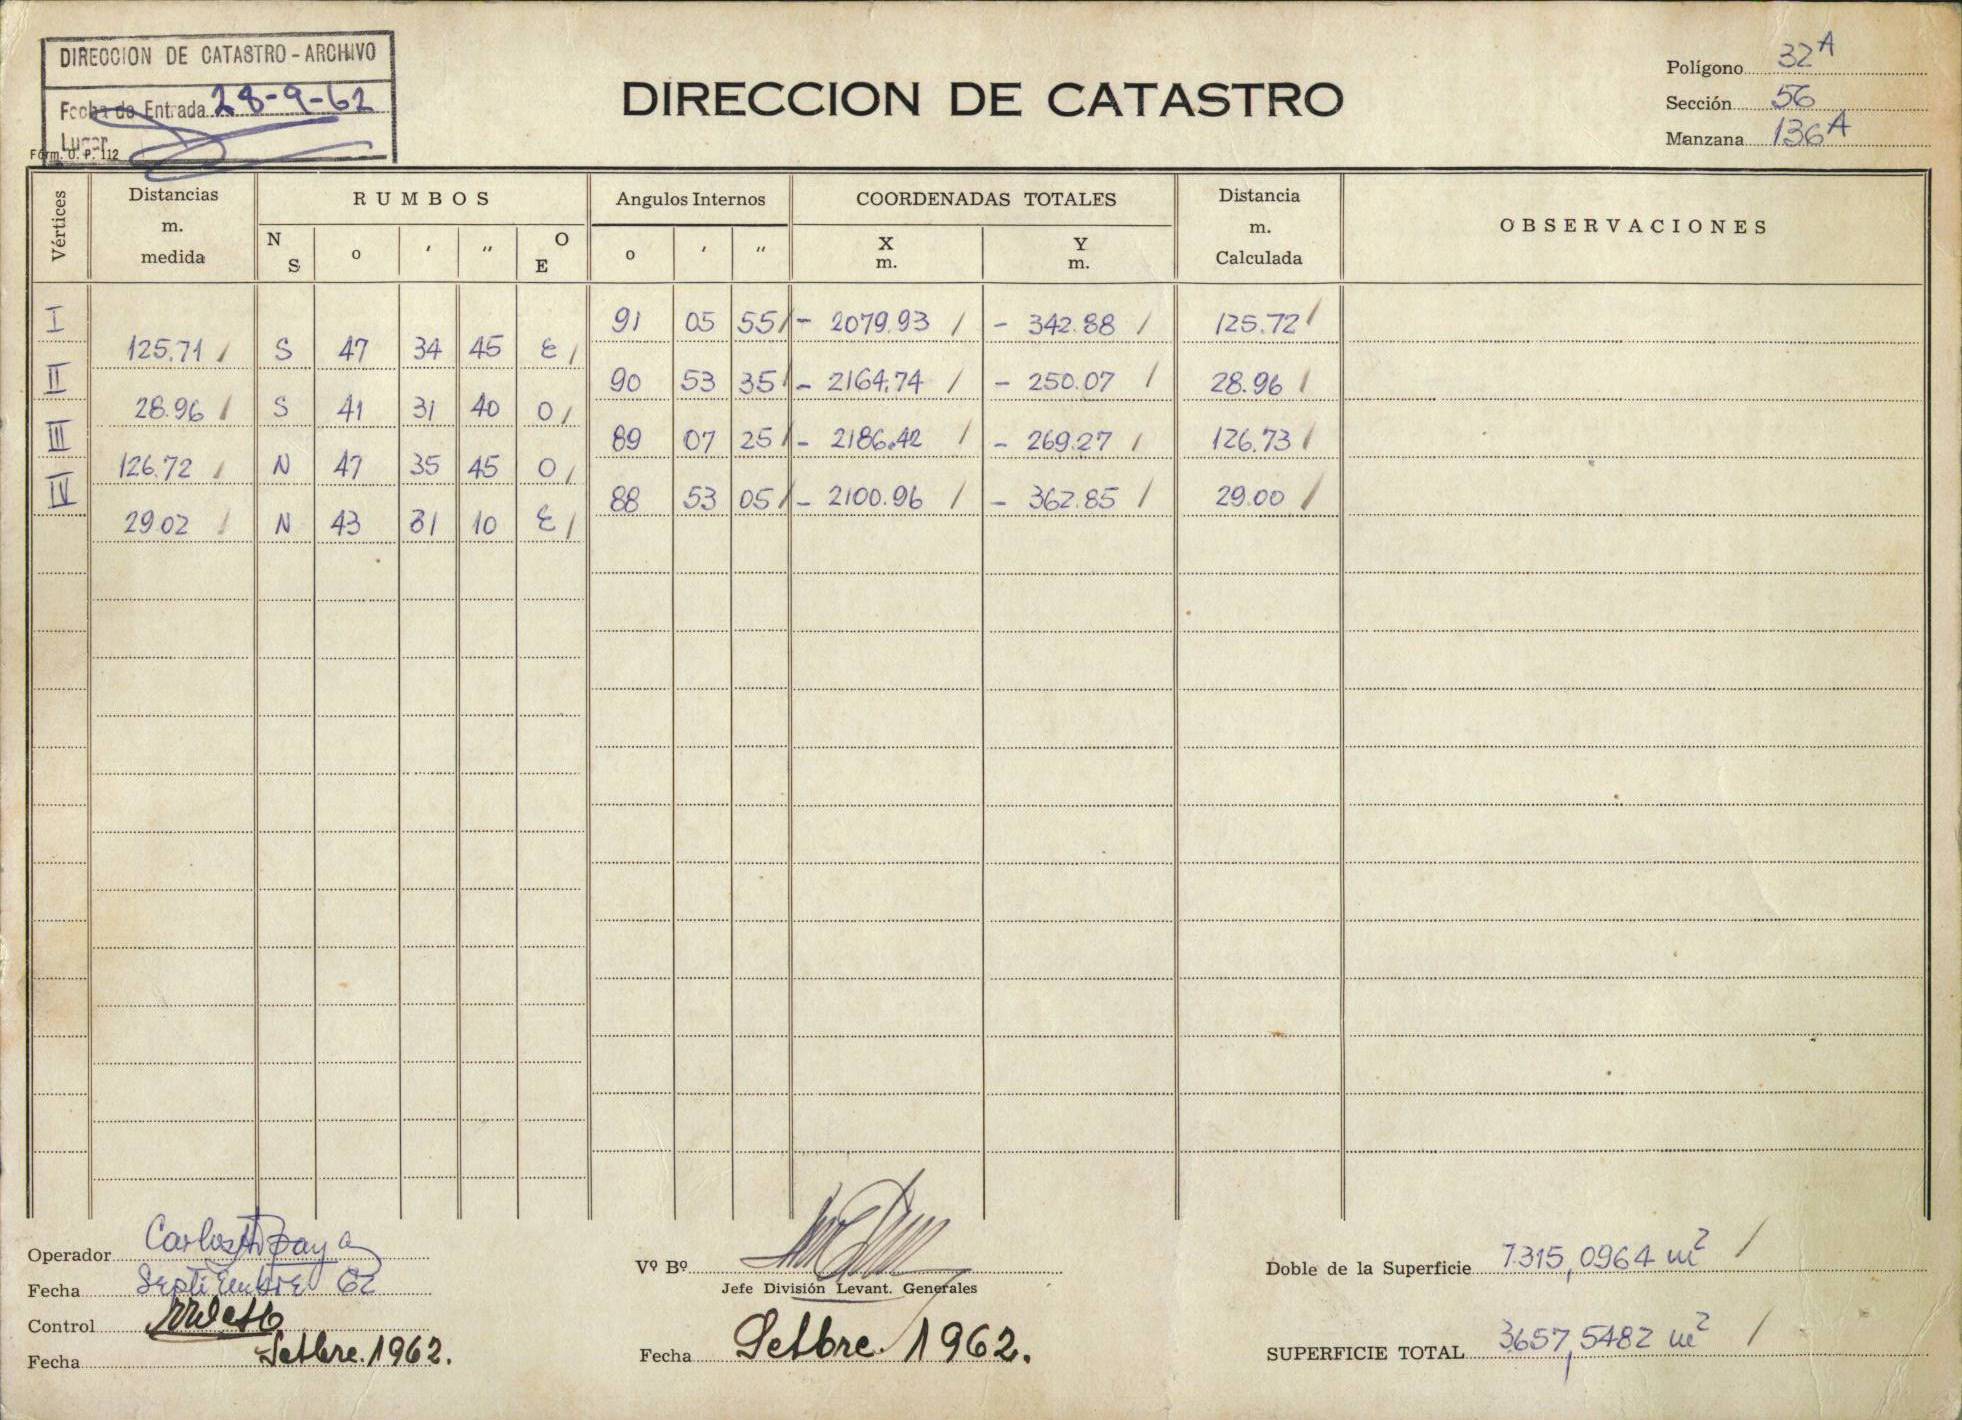 DIRECCION DE CATASTRO - ARCHIVO
Fecha de Entrada 28-9-62
Lugar
Form. O. P. 112
DIRECCION DE CATASTRO
Polígono 32 A
Sección 56
Manzana 136 A
Vértices
Distancias m. medida
RUMBOS
Angulos Internos
COORDENADAS TOTALES
Distancia m. Calculada
OBSERVACIONES
N S o ' " O E
o ' "
X m.
Y m.
I 91 05 55 - 2079.93 - 342.88 125.72
125.71 S 47 34 45 E
II 90 53 35 - 2164.74 - 250.07 28.96
28.96 S 41 31 40 O
III 89 07 25 - 2186.42 - 269.27 126.73
126.72 N 47 35 45 O
IV 88 53 05 - 2100.96 - 362.85 29.00
29.02 N 43 31 10 E
Operador Carlos
Fecha Septiembre 62
Control
Fecha Setbre. 1962.
Vº Bº
Jefe División Levant. Generales
Fecha Setbre. 1962.
Doble de la Superficie 7315,0964 m²
SUPERFICIE TOTAL 3657,5482 m²